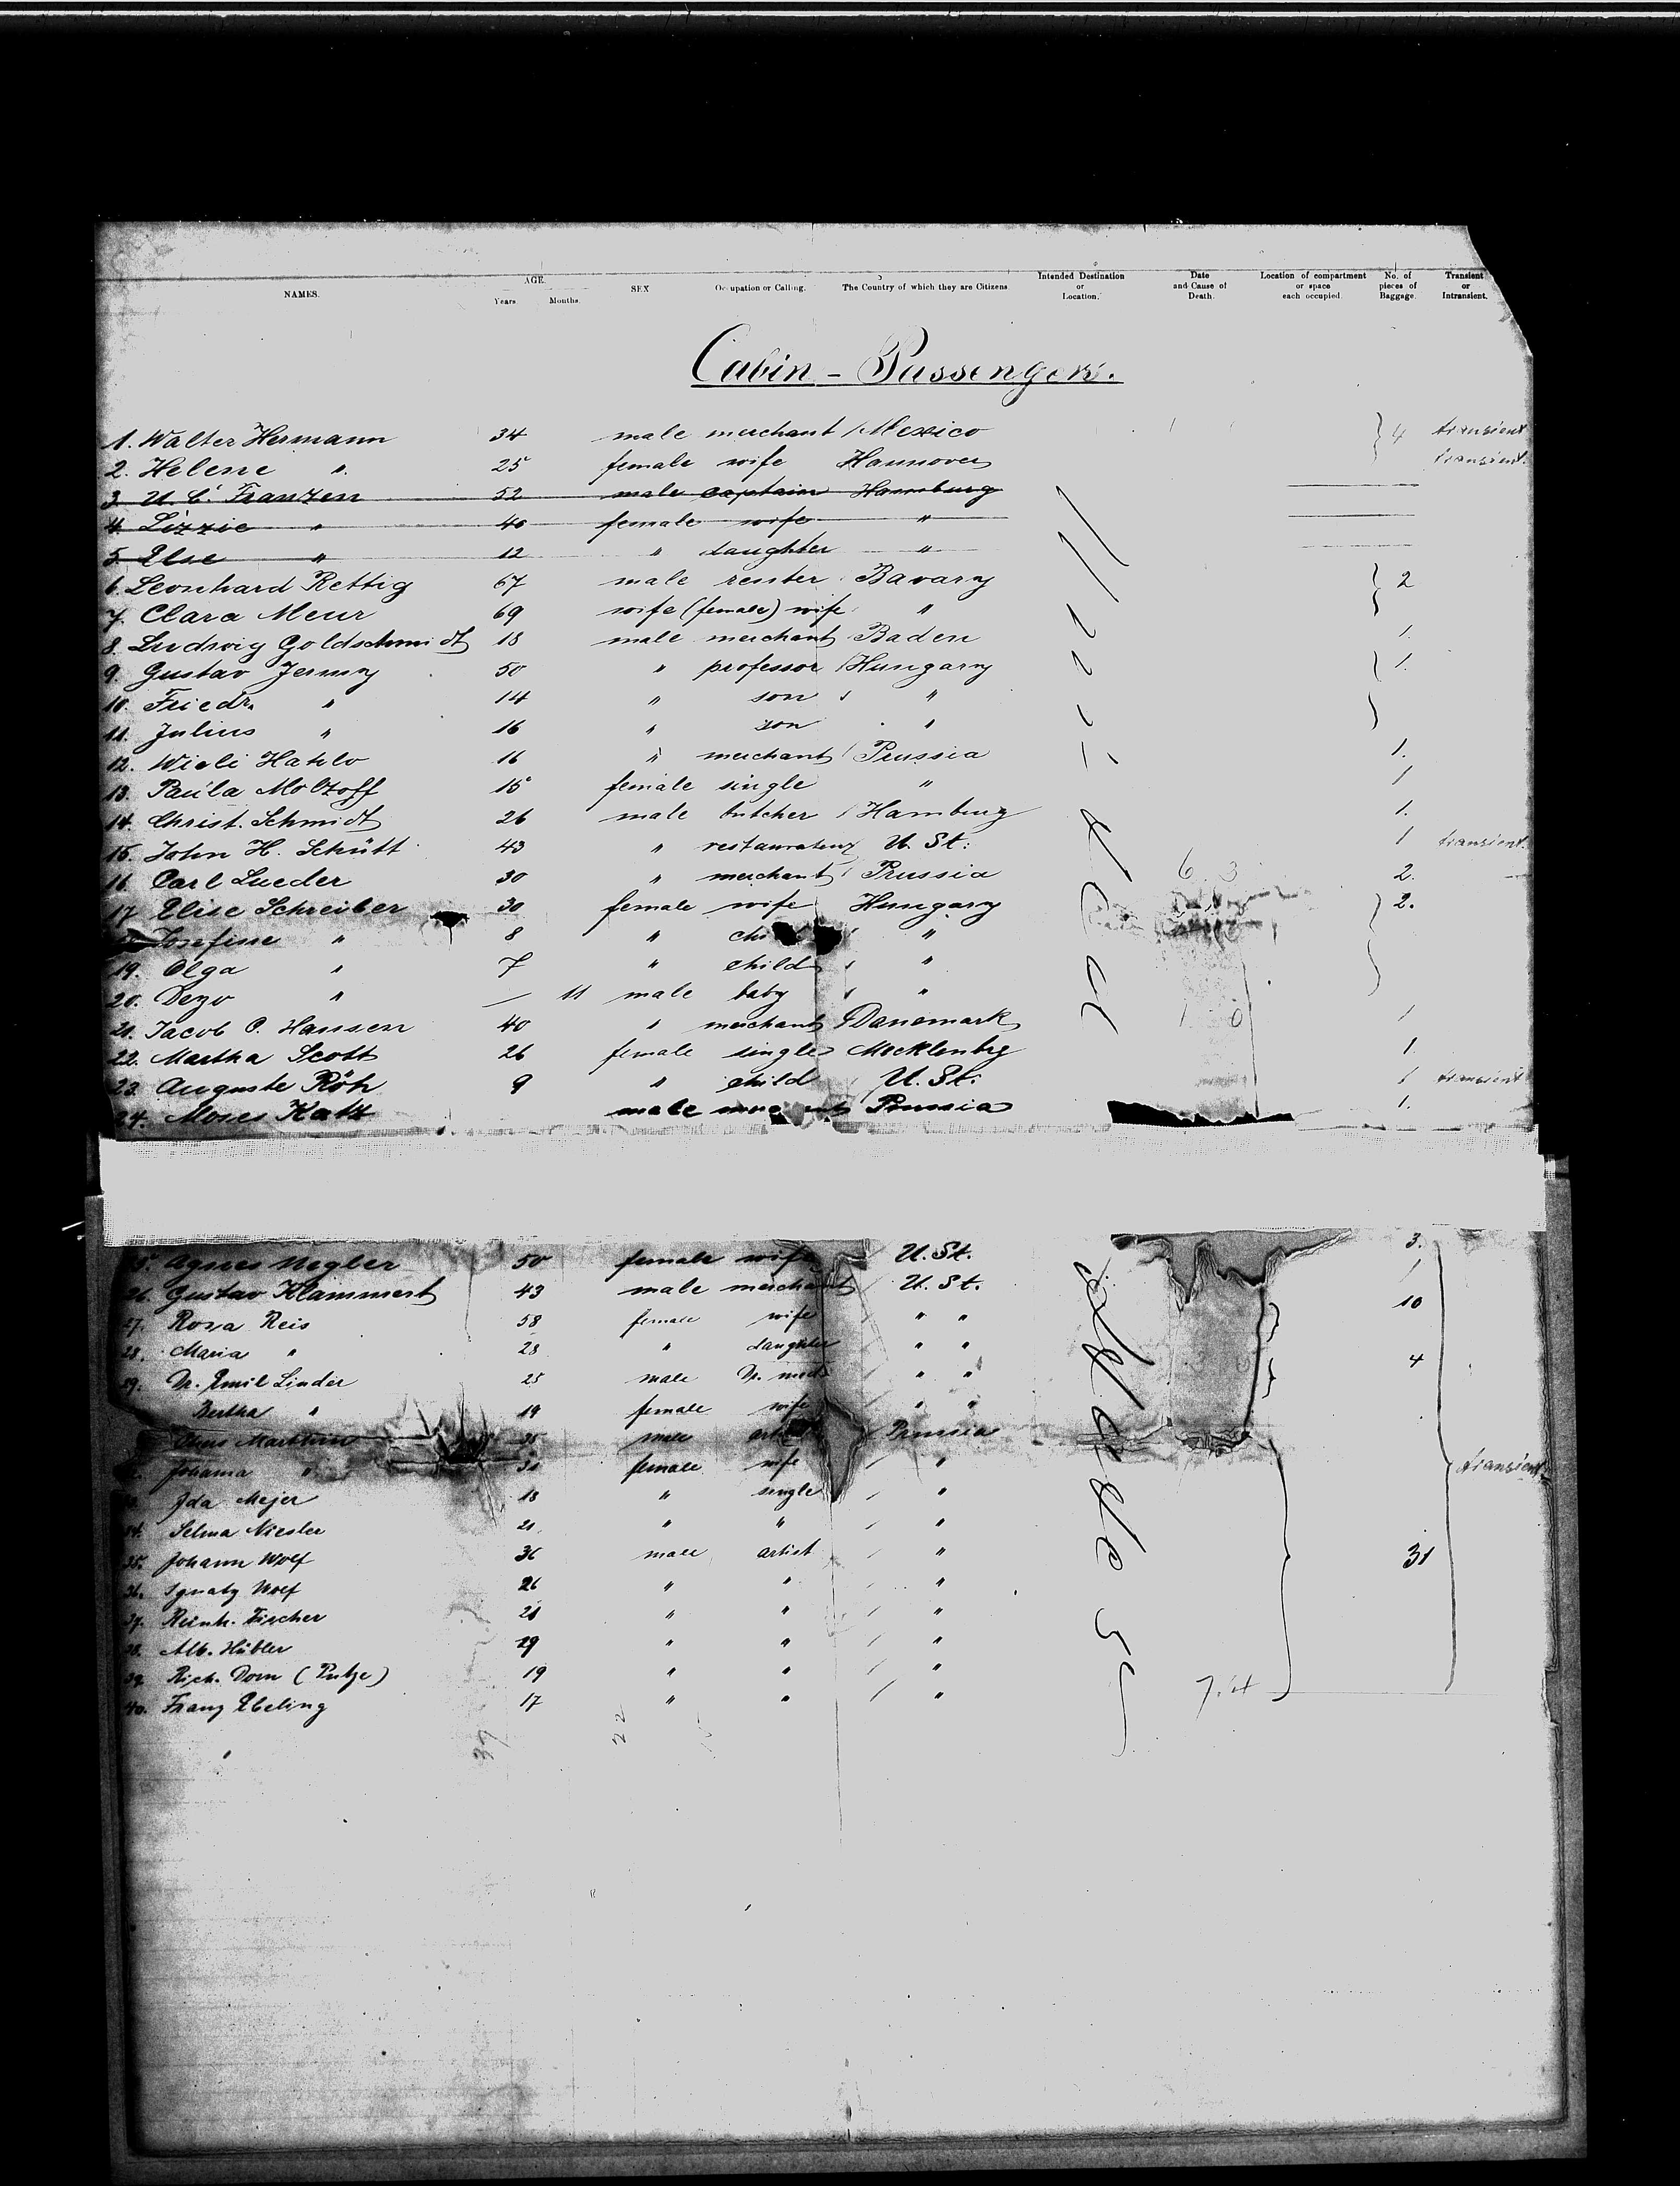 NAMES. AGE. Years Months. SEX Occupation or Calling. The Country of which they are Citizens. Intended Destination or Location. Date and Cause of Death. Location of compartment or space each occupied. No. of pieces of Baggage. Transient or Intransient.
Cabin - Passengers.
1. Walter Hermann 34 male merchant Mexico 4 transient
2. Helene " 25 female wife Hannover transient.
3. U. C. Franzen 52 male captain Hamburg
4. Lizzie " 40 female wife "
5. Else " 12 " daughter "
6. Leonhard Rettig 67 male renter Bavary 2
7. Clara Meur 69 wife (female) wife "
8. Ludwig Goldschmidt 18 male merchant Baden 1.
9. Gustav Jermy 50 " professor Hungary 1.
10. Friedr. " 14 " son "
11. Julius " 16 " son "
12. Wieli Hahlo 16 " merchant Prussia 1.
13. Paula Moltzoff 15 female single " 1
14. Christ. Schmidt 26 male butcher Hamburg 1.
15. John H. Schütt 43 " U. St. 1 transient.
16. Carl Lueder 30 " merchant Prussia 6.3 2.
17 Elise Schreiber 30 female wife Hungary 2.
Josefine " 8 " "
19. Olga " 7 " child "
20. Dezo " — 11 male baby "
21. Jacob C. Hansen 40 " merchant Danemark 1
22. Martha Scott 26 female single Mecklenbg 1.
23. Auguste Röh 9 " child U. St. 1 transient
24. Moses Katz male Prussia 1.
Agnes Negler 50 female wife U. St. 3.
26. Gustav Klammert 43 male merchant U. St. 1
27. Rosa Reis 58 female wife " " 10
28. Maria " 28 " daughter " "
29. Dr. Emil Linder 25 male Dr. med. " " 4
Bertha " 19 female wife " "
male Prussia
Johanna " female wife " transient
Ida Mejer 18 " single "
34. Selma Niesler 21 " " "
35. Johann Wolf 36 male artist " 31
36. Ignatz Wolf 26 " " "
37. Reinh. Fischer 21 " " "
38. Alb. Hübler 29 " " "
39. Rich. Dorn (Putze) 19 " " "
40. Franz Ebeling 17 " " "
39 22